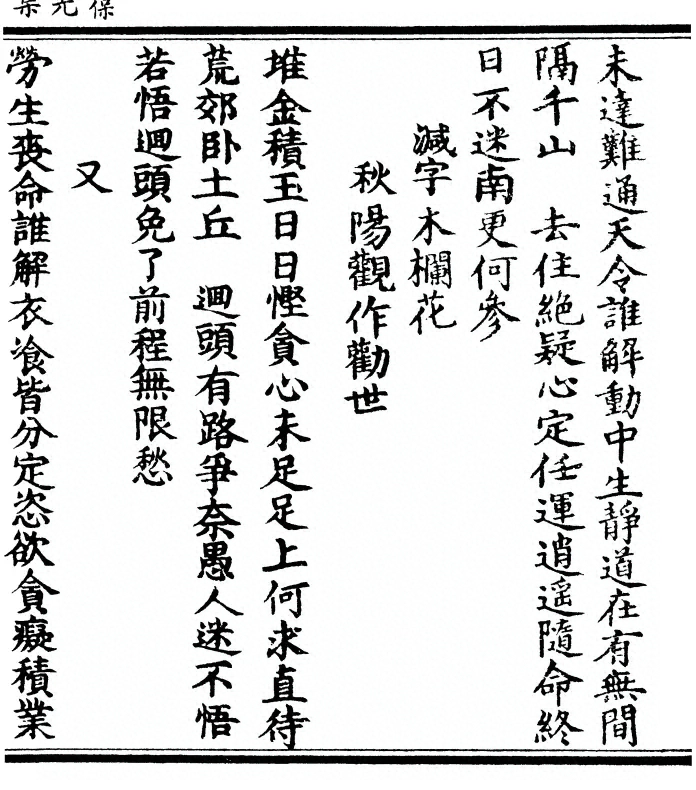 未達難通天令誰解動中生靜道在有無間
隔千山　去住絶疑心定任運逍遥隨命終
日不迷南更何參
減字木欄花
秋陽觀作勸世
堆金積玉日日慳貪心未足足上何求直待
荒郊卧土丘　迴頭有路爭奈愚人迷不悟
若悟迴頭免了前程無限愁
又
勞生喪命誰解衣飡皆分定恣欲貪癡積業